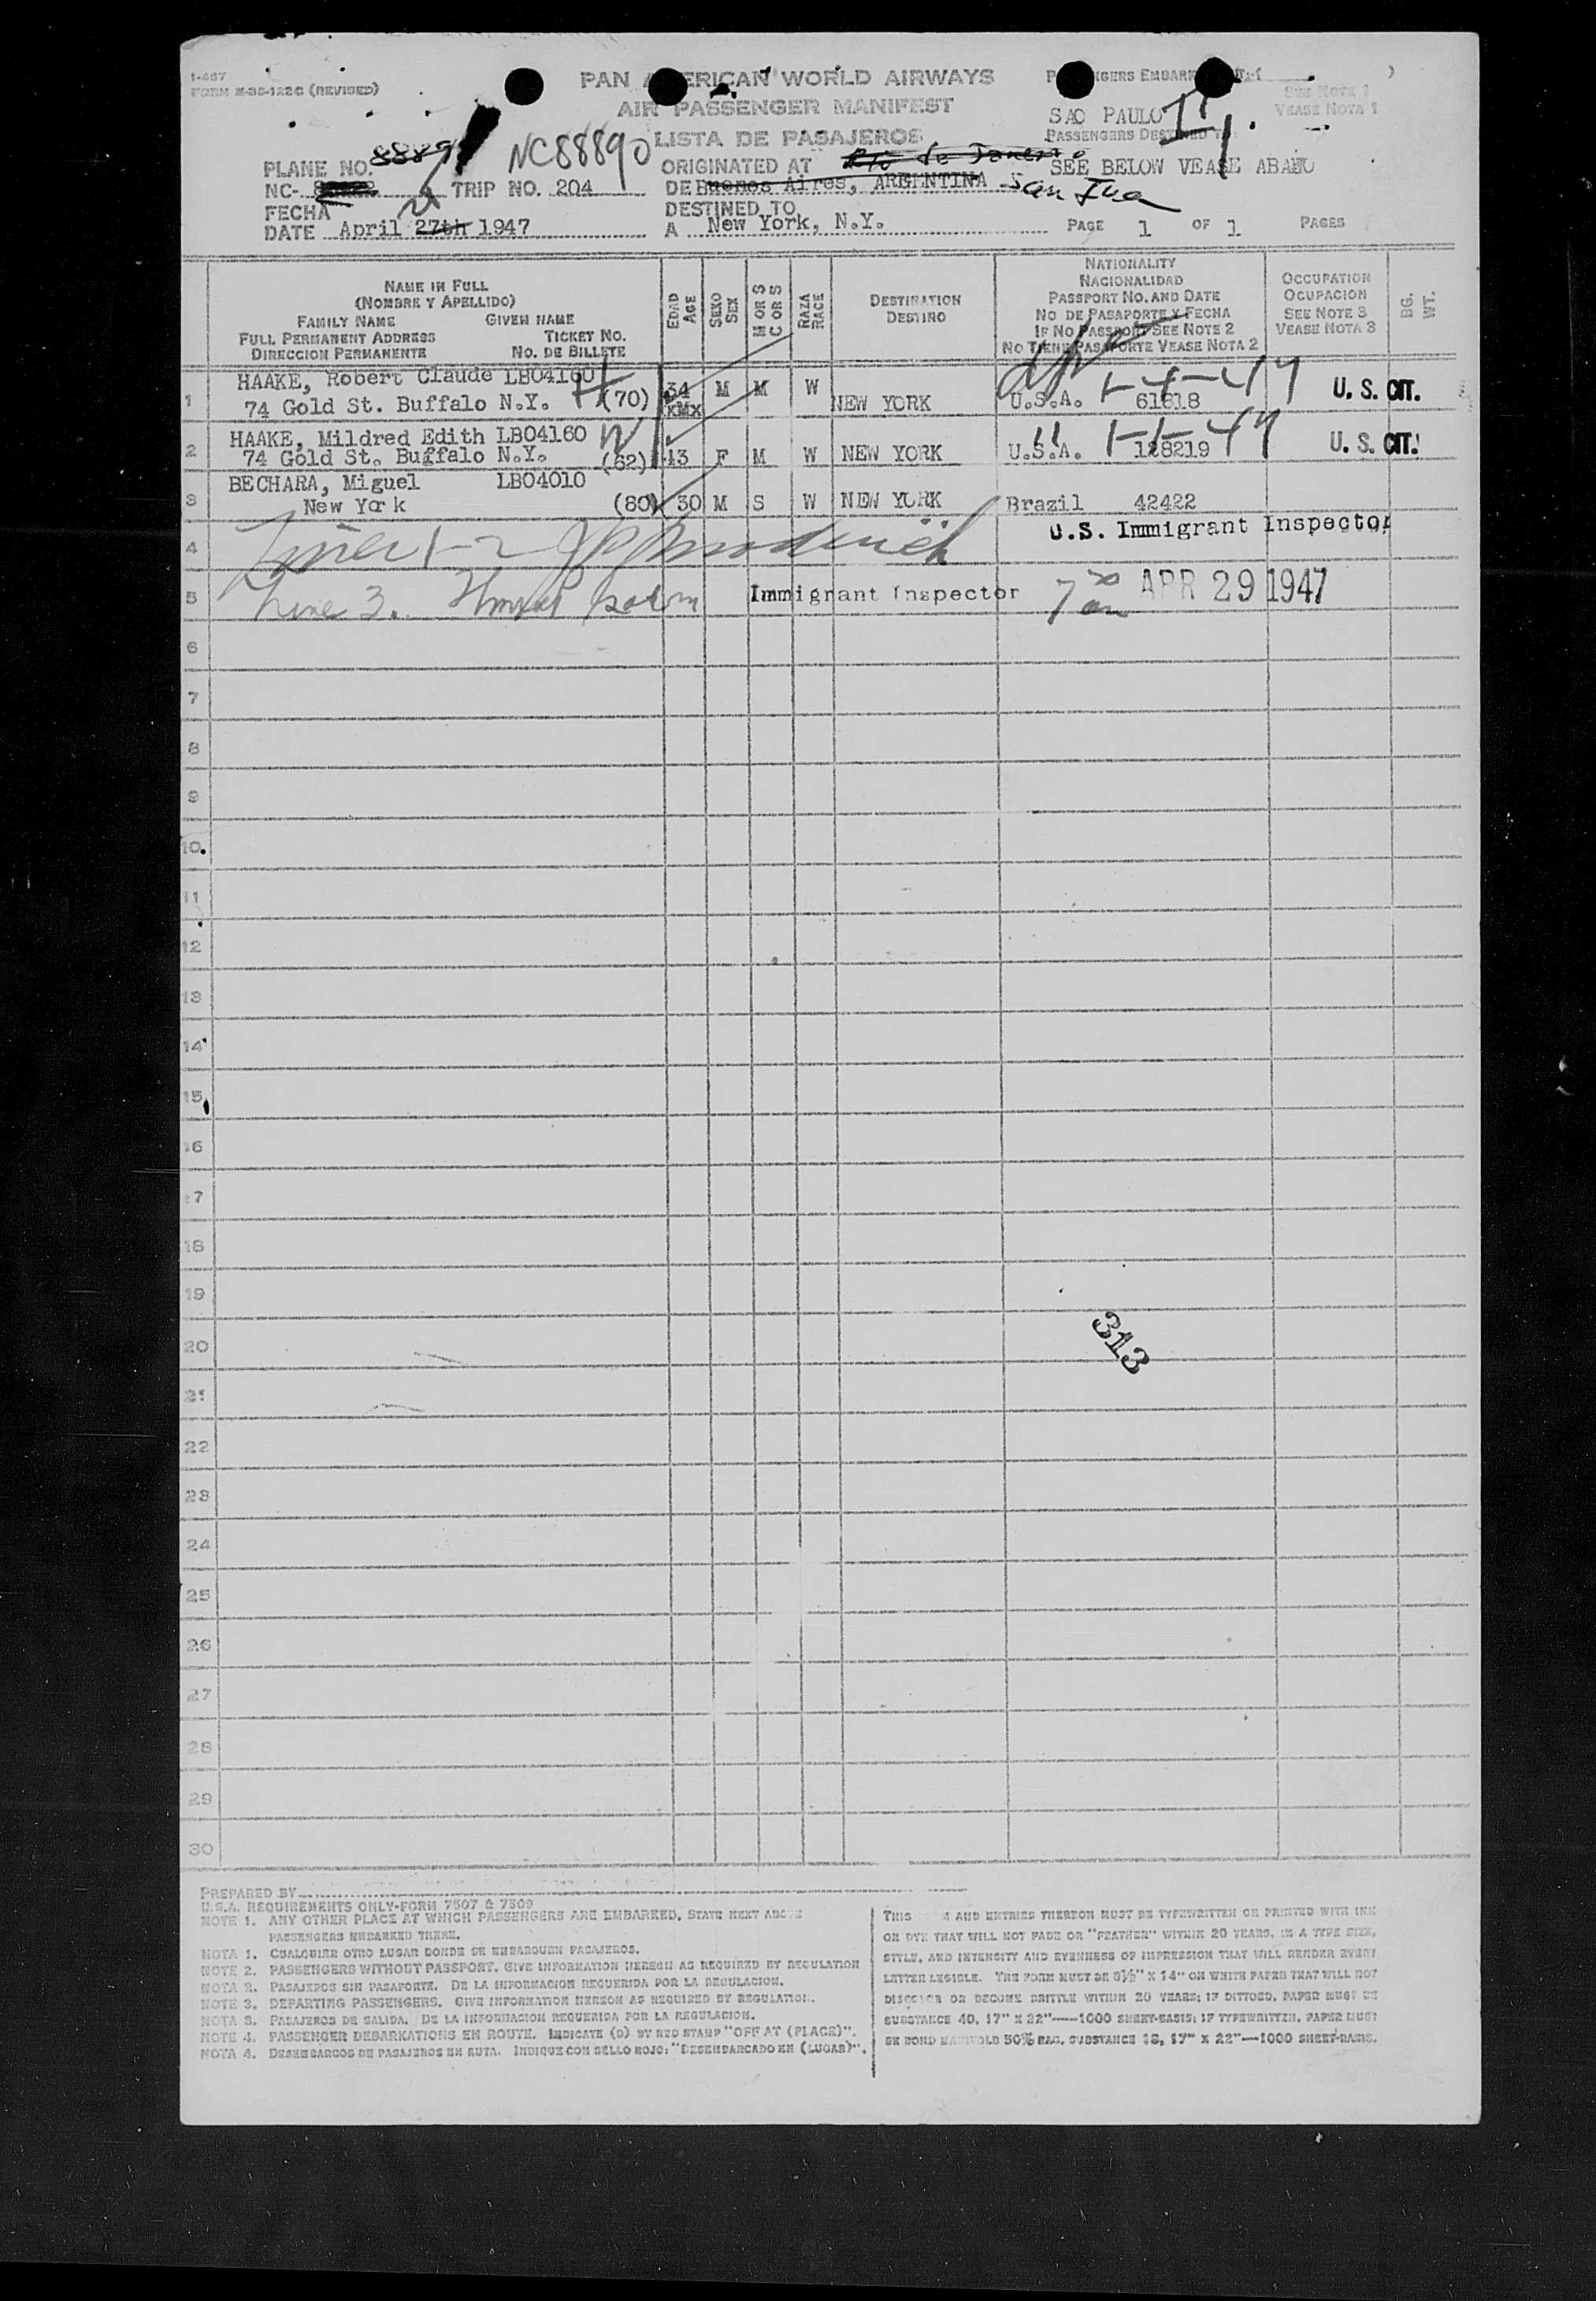 I-467
FORM M-38-122C (REVISED)
PAN AMERICAN WORLD AIRWAYS
AIR PASSENGER MANIFEST
LISTA DE PASAJEROS
SAO PAULO
SEE NOTE 1
VEASE NOTA 1
SEE BELOW VEASE ABAJO
PLANE NO. 8889 NC88890
NC- TRIP NO. 204
ORIGINATED AT Rio de Janeiro
DE Buenos Aires, ARGENTINA San Jua
FECHA
DATE April 27th 1947
DESTINED TO
A New York, N.Y.
PAGE 1 OF 1 PAGES
NAME IN FULL
(NOMBRE Y APELLIDO)
FAMILY NAME GIVEN NAME
FULL PERMANENT ADDRESS TICKET NO.
DIRECCION PERMANENTE NO. DE BILLETE
EDAD AGE
SEXO SEX
M OR S C OR S
RAZA RACE
DESTINATION DESTINO
NATIONALITY
NACIONALIDAD
PASSPORT NO. AND DATE
NO DE PASAPORTE Y FECHA
IF NO PASSPORT SEE NOTE 2
NO TIENE PASAPORTE VEASE NOTA 2
OCCUPATION
OCUPACION
SEE NOTE 3
VEASE NOTA 3
BG. WT.
1 HAAKE, Robert Claude LB04160
74 Gold St. Buffalo N.Y. (70) 34 M M W NEW YORK U.S.A. 61618 U.S. CIT.
2 HAAKE, Mildred Edith LB04160
74 Gold St. Buffalo N.Y. (62) 43 F M W NEW YORK U.S.A. 128219 U.S. CIT.
3 BECHARA, Miguel LB04010
New York (80) 30 M S W NEW YORK Brazil 42422
U.S. Immigrant Inspector
4 Lines 1-2
5 Line 3. Immigrant Inspector 7 30 am APR 29 1947
6
7
8
9
10
11
12
13
14
15
16
17
18
19
20
313
21
22
23
24
25
26
27
28
29
30
PREPARED BY
U.S.A. REQUIREMENTS ONLY-FORM 7507 & 7509
NOTE 1. ANY OTHER PLACE AT WHICH PASSENGERS ARE EMBARKED, STATE NEXT ABOVE
PASSENGERS EMBARKED THERE.
NOTA 1. CUALQUIER OTRO LUGAR DONDE SE EMBARQUEN PASAJEROS.
NOTE 2. PASSENGERS WITHOUT PASSPORT. GIVE INFORMATION HEREON AS REQUIRED BY REGULATION
NOTA 2. PASAJEROS SIN PASAPORTE. DE LA INFORMACION REQUERIDA POR LA REGULACION.
NOTE 3. DEPARTING PASSENGERS. GIVE INFORMATION HEREON AS REQUIRED BY REGULATION.
NOTA 3. PASAJEROS DE SALIDA. DE LA INFORMACION REQUERIDA POR LA REGULACION.
NOTE 4. PASSENGER DEBARKATIONS EN ROUTE. INDICATE (D) BY RED STAMP "OFF AT (PLACE)".
NOTA 4. DESEMBARCOS DE PASAJEROS EN RUTA. INDIQUE CON SELLO ROJO: "DESEMBARCADO EN (LUGAR)".
THIS AND ENTRIES THEREON MUST BE TYPEWRITTEN OR PRINTED WITH INK
OR DYE THAT WILL NOT FADE OR "FEATHER" WITHIN 20 YEARS, IN A TYPE SIZE,
STYLE, AND INTENSITY AND EVENNESS OF IMPRESSION THAT WILL RENDER EVERY
LETTER LEGIBLE. THE FORM MUST BE 8½" X 14" ON WHITE PAPER THAT WILL NOT
DISCOLOR OR BECOME BRITTLE WITHIN 20 YEARS; IF DITTOED, PAPER MUST BE
SUBSTANCE 40, 17" X 22"—1000 SHEET-BASIS; IF TYPEWRITTEN, PAPER MUST
BE BOND MANIFOLD 50% RAG, SUBSTANCE 18, 17" X 22"—1000 SHEET-BASIS.